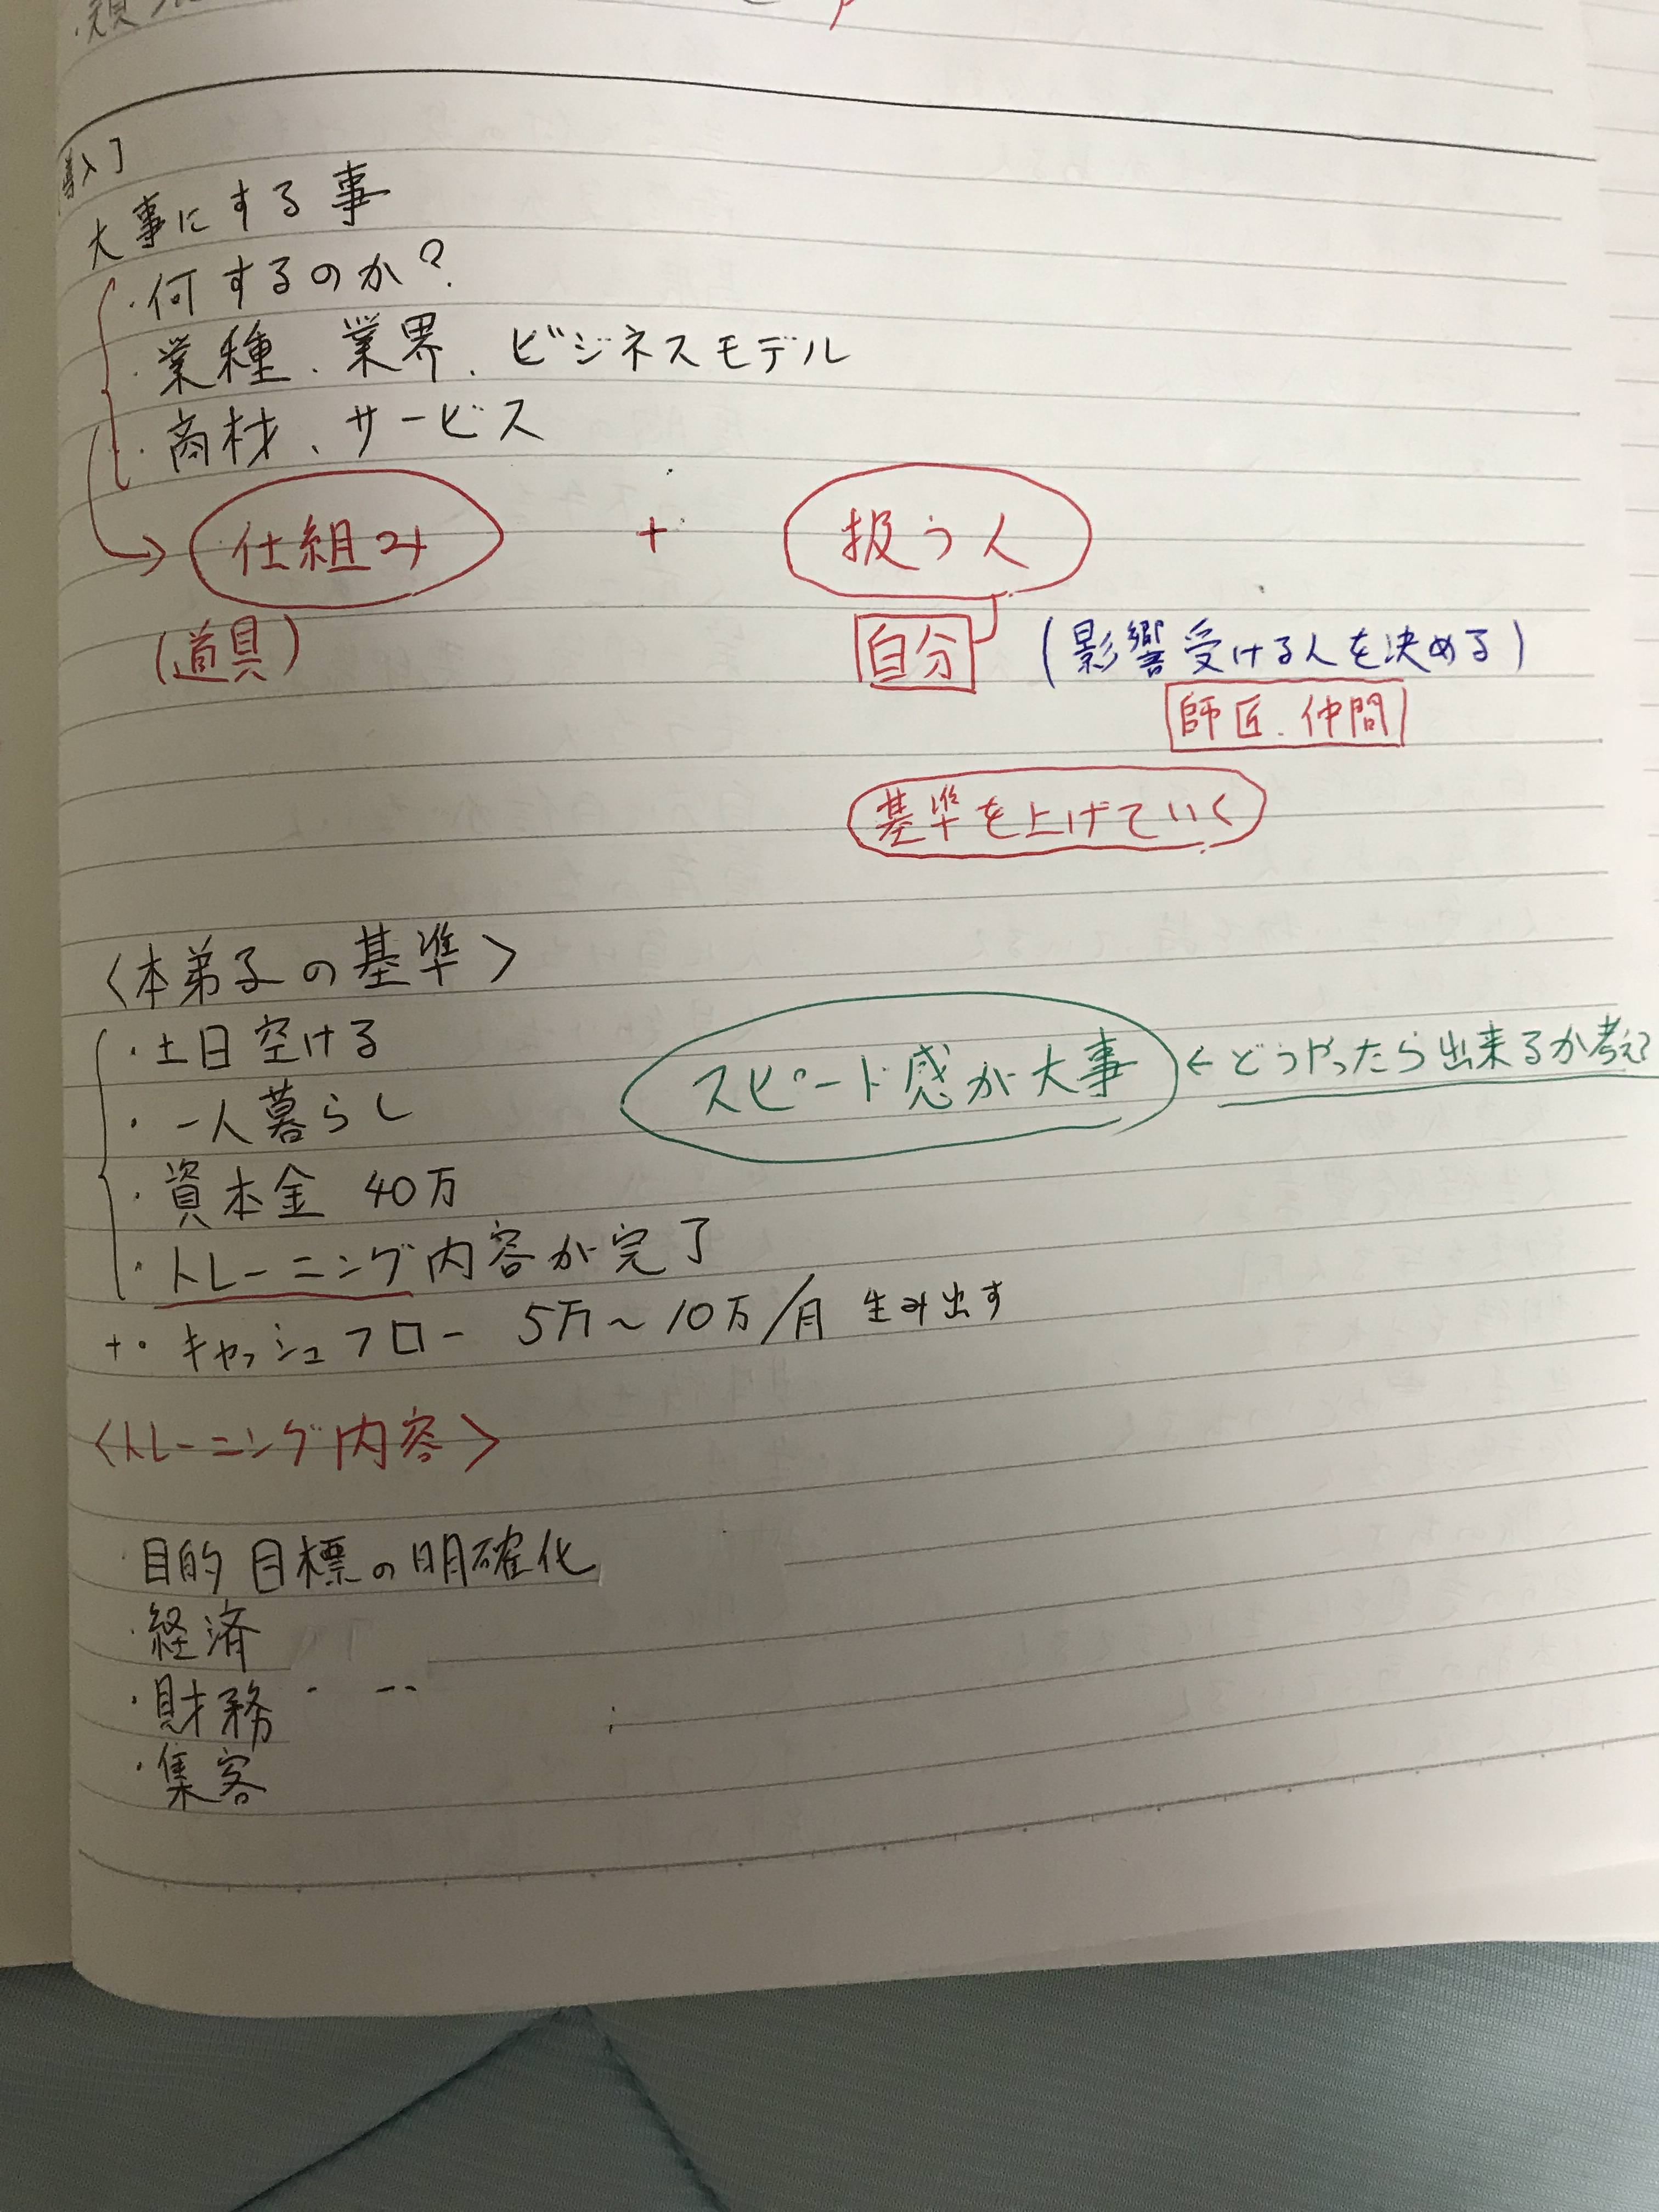 導入］
大事にする事
・何するのか？
・業種、業界、ビジネスモデル
・商材、サービス
→ 仕組み + 扱う人
（道具） 自分 （影響受ける人を決める）
師匠、仲間
基準を上げていく
〈本弟子の基準〉
・土日空ける
スピード感が大事 ← どうやったら出来るか考え
・一人暮らし
・資本金 40万
・トレーニング内容が完了
+・キャッシュフロー 5万〜10万/月 生み出す
〈トレーニング内容〉
・目的 目標の明確化
・経済
・財務
・集客